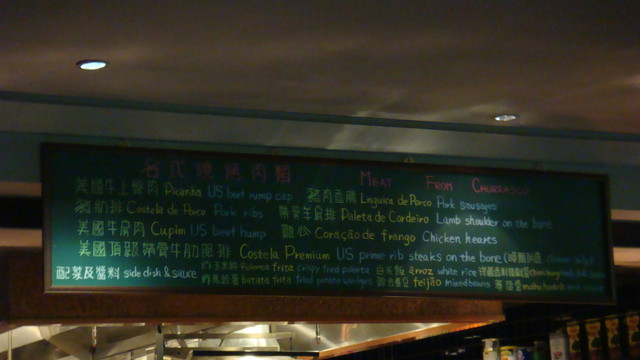 各式燒烤肉類 MEAT FROM CHURRASCO
美國牛上燒肉 Picanha US beef rump cap 豬肉香腸 Linguica de Porco Pork sausages
豬肋排 Costela de Porco Pork ribs 帶骨羊肩排 Paleta de Cordeiro Lamb shoulder on the bone
美國牛肩肉 Cupim US beef hump 雞心 Coração de frango Chicken hearts
美國頂級帶骨牛肋肥排 Costela Premium US prime rib steaks on the bone
配菜及醬料 side dish & sauce 炸玉米餅 Polenta frita crispy fried polenta 白米飯 arroz white rice
batata frita fried potato wedges feijão mixed beans